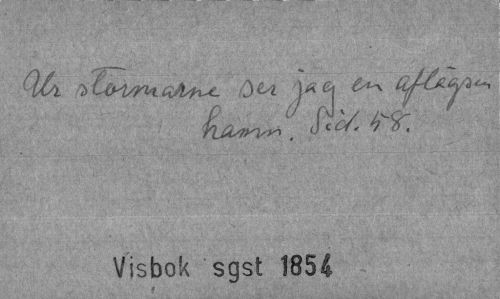 Ur stormarne ser jag en aflägsen
hamn. Sid. 58.
Visbok sgst 1854